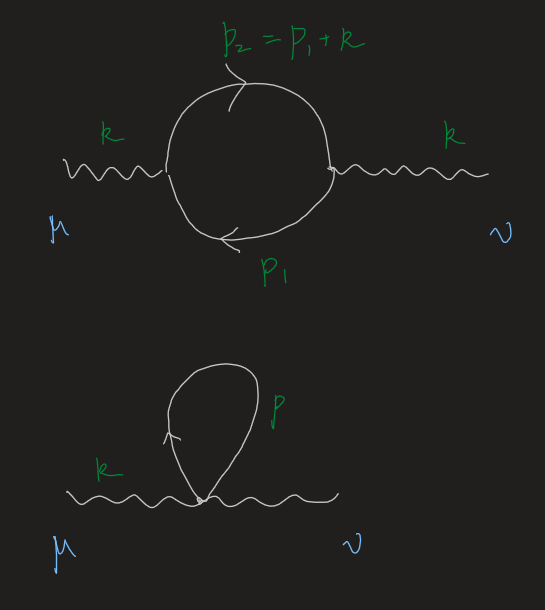 p₂ = p₁ + k
k k
μ ν
p₁
p
k
μ ν